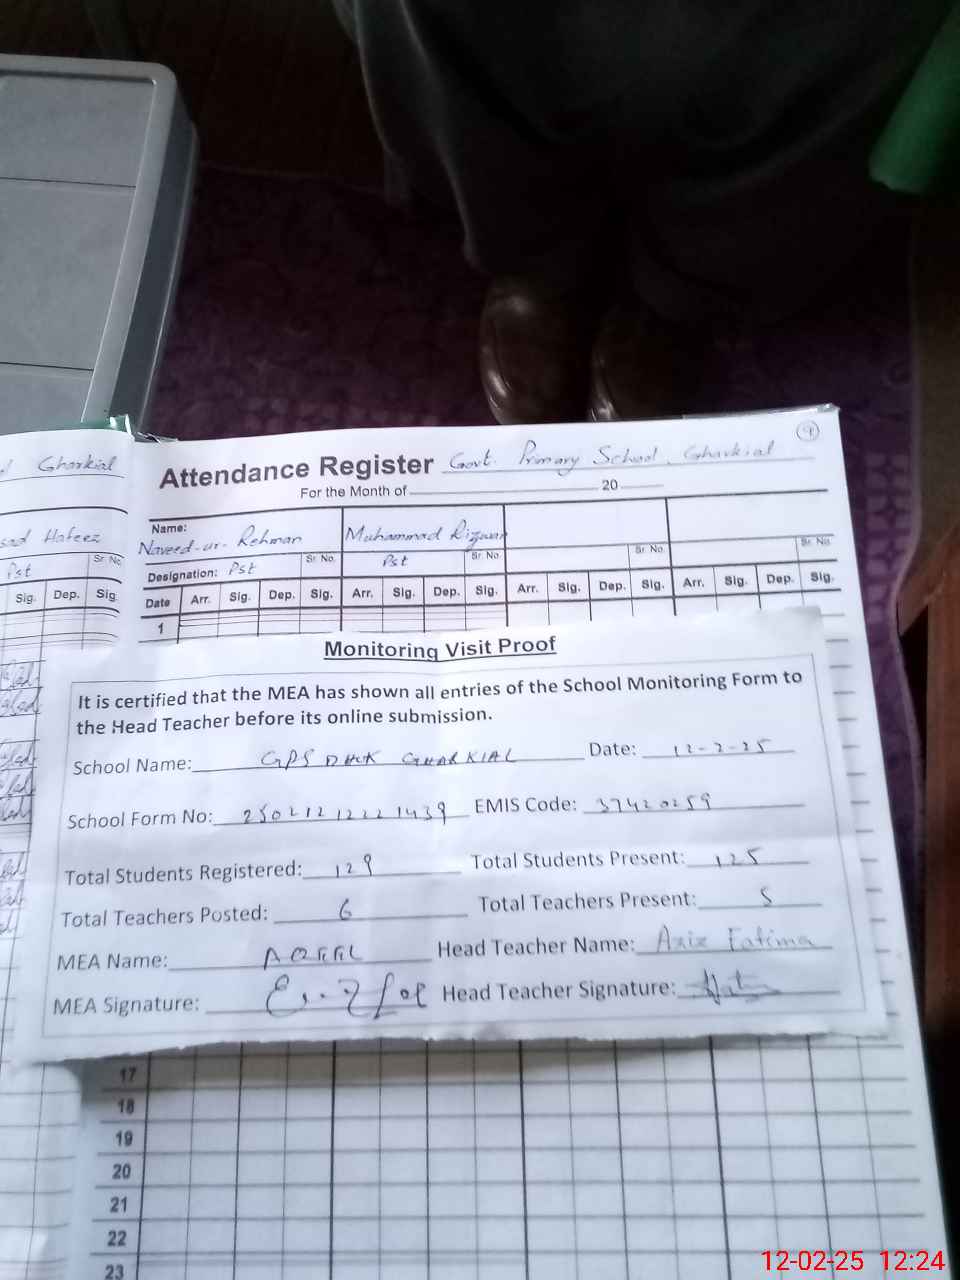 Gharkial
Attendance Register Govt. Primary School, Gharkial
9
For the Month of 20
Name:
Naveed-ur-Rehman
Muhammad Rizwan
Hafeez
Pst
Sr No
Designation: Pst
Sr No.
Pst
Sr No.
Sr No.
Sr No.
Sig. Dep. Sig.
Date Arr. Sig. Dep. Sig. Arr. Sig. Dep. Sig. Arr. Sig. Dep. Sig. Arr. Sig. Dep. Sig.
1
Monitoring Visit Proof
It is certified that the MEA has shown all entries of the School Monitoring Form to
the Head Teacher before its online submission.
School Name: GPS DHOK GHARKIAL Date: 12-2-25
School Form No: 25021212221439 EMIS Code: 37420259
Total Students Registered: 129 Total Students Present: 125
Total Teachers Posted: 6 Total Teachers Present: 5
MEA Name: AQEEL Head Teacher Name: Aziz Fatima
MEA Signature: Head Teacher Signature:
17
18
19
20
21
22
23
12-02-25 12:24